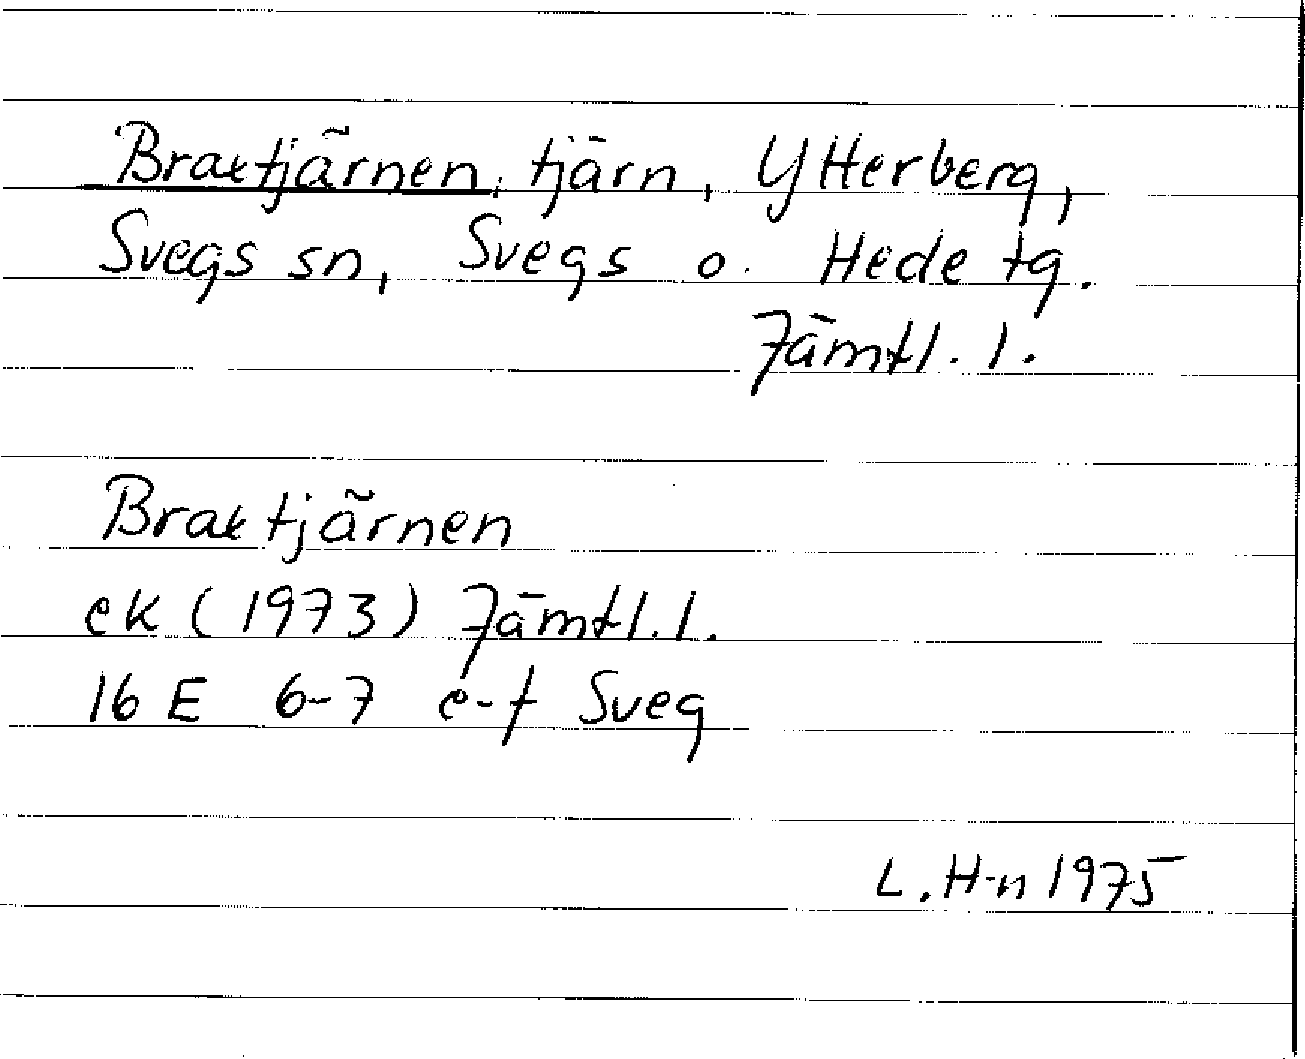 Braktjärnen, tjärn, Ytterberg,
Svegs sn, Svegs o. Hede tg.
Jämtl. l.
Braktjärnen
ek (1973) Jämtl. l.
16 E 6-7 e-f Sveg
L. H-n 1975